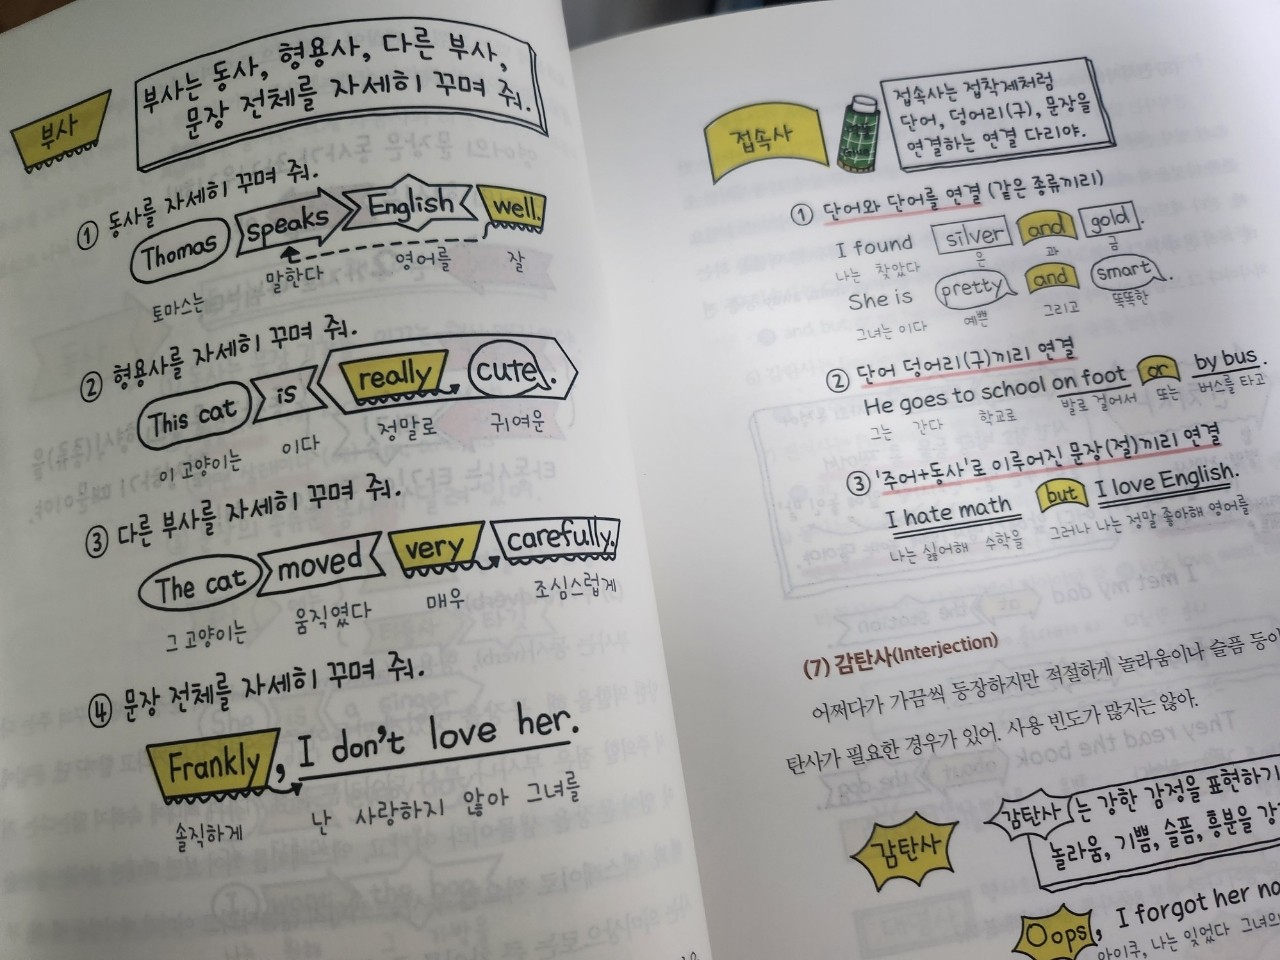 부사
부사는 동사, 형용사, 다른 부사,
문장 전체를 자세히 꾸며 줘.
① 동사를 자세히 꾸며 줘.
Thomas speaks English well.
토마스는 말한다 영어를 잘
② 형용사를 자세히 꾸며 줘.
This cat is really cute.
이 고양이는 이다 정말로 귀여운
③ 다른 부사를 자세히 꾸며 줘.
The cat moved very carefully.
그 고양이는 움직였다 매우 조심스럽게
④ 문장 전체를 자세히 꾸며 줘.
Frankly, I don't love her.
솔직하게 난 사랑하지 않아 그녀를
접속사
접속사는 접착제처럼
단어, 덩어리(구), 문장을
연결하는 연결 다리야.
① 단어와 단어를 연결 (같은 종류끼리)
I found silver and gold.
나는 찾았다 은 과 금
She is pretty and smart.
그녀는 이다 예쁜 그리고 똑똑한
② 단어 덩어리(구)끼리 연결
He goes to school on foot or by bus.
그는 간다 학교로 발로 걸어서 또는 버스를 타고
③ '주어+동사'로 이루어진 문장(절)끼리 연결
I hate math but I love English.
나는 싫어해 수학을 그러나 나는 정말 좋아해 영어를
(7) 감탄사(Interjection)
어쩌다가 가끔씩 등장하지만 적절하게 놀라움이나 슬픔 등이
탄사가 필요한 경우가 있어. 사용 빈도가 많지는 않아.
감탄사
감탄사는 강한 감정을 표현하기
놀라움, 기쁨, 슬픔, 흥분을 강
Oops, I forgot her
아이쿠, 나는 잊었다 그녀의